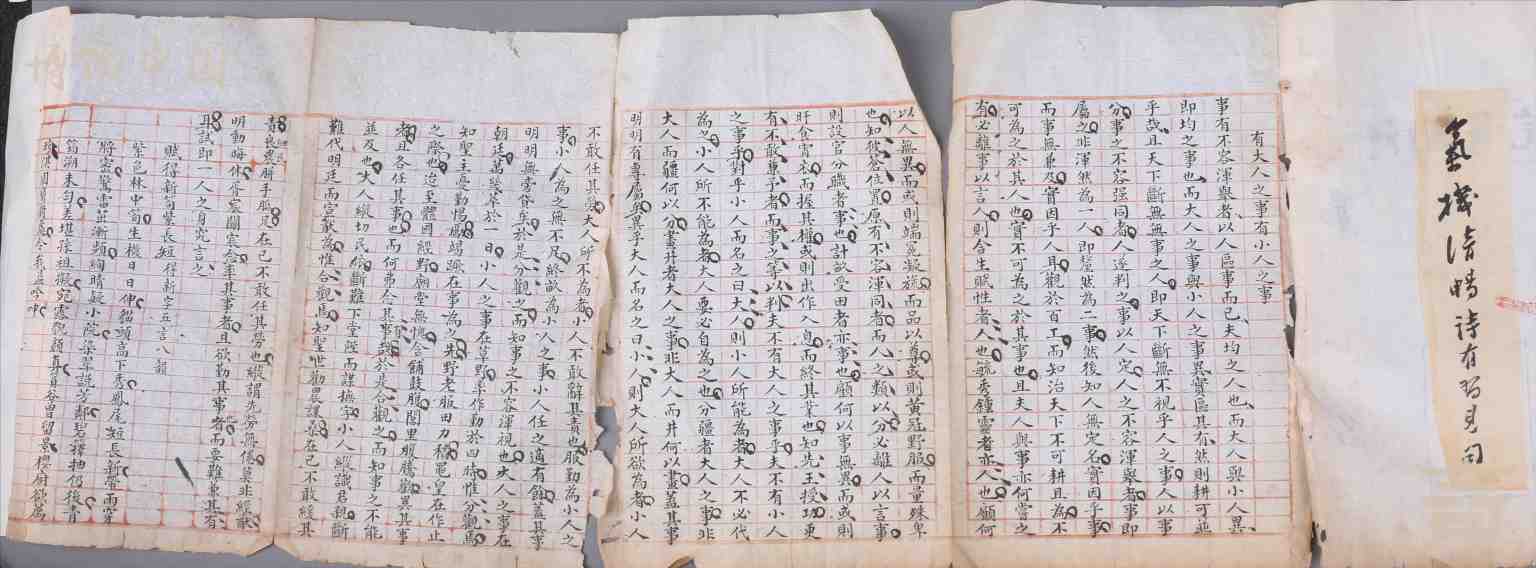 氣機清暢詩有習見句
有大人之事有小人之事
事有不容渾舉者以人區事而已夫均之人也而大人與小人異
即均之事也而大人之事與小人之事異實區其有然則耕可並
乎哉且天下斷無無事之人即天下斷無不視乎人之事人以事
分事之不容强同者人遂判之事以人定人之不容渾舉者事即
屬之非渾然為一人即釐然為二事然後知人無定名實因乎事
而事無兼及實因乎人耳觀於百工而知治天下不可耕且為不
可為之於其人也實不可為之於其事也且夫人與事亦何嘗之
有必離事以言人則含生賦性者人也毓秀鍾靈者亦人也顧何
以人無異而或則端冕凝旒而品以尊或則黃冠野服而量殊卑
也知彼蒼位置原有不容渾同者而人之類以分必離人以言事
則設官分職者事也計畝受田者亦事也顧何以事無異而或則
旰食宵衣而握其權或則出作入息而終其業也知先王授功更
有不敢兼予者而事之等以判夫不有大人之事乎夫不有小人
之事乎對乎小人而名之曰大人則小人所能為者大人不必代
為之小人所不能為者大人要必自為之也分疆者大人之事非
大人而疆何以分畫井者大人之事非大人而井何以畫蓋其事
明明有專屬焉異乎大人而名之曰小人則大人所欲為者小人
不敢任其憂大人所不為者小人不敢辭其責也服勤為小人之
事小人為之無不足終畝為小人之事小人任之適有餘蓋其事
明明無旁貸矣於是分觀之而知事之不容渾視也大人之事在
朝廷萬幾萃於一日小人之事在草野衆作勤於四時惟分觀焉
知聖主憂勤惕厲竭蹶在事為之先野老服田力穡罷皇在作止
之際也迨至體國經野廟堂無愧含餔鼓腹閭里服疇觀異其事
者且各任其事也而何弗合其事哉於是合觀之而知事之不能
並及也大人縱切民依斷難下堂陛而謀撫字小人縱識君親斷
難代明廷而宣猷為惟合觀焉知聖世勸農讓桑在己不敢綏其
責艮農胼手胝足在己不敢任其勞也縱謂先勞無倦莫非經猷
明動晦休胥宏圖率其事者且欲勤其事者而要難兼其有
耳試即一人之身究言之
賦得新筍纍長短得新字五言八韻
紫邑林中筍生機日日伸貓頭高下秀鳳尾短長新帶雨穿
將密驚雷茁漸頻絢晴敲小院染翠説芳鄰碧籜抽仍後青
箔溯未勻差堪搽祖擬